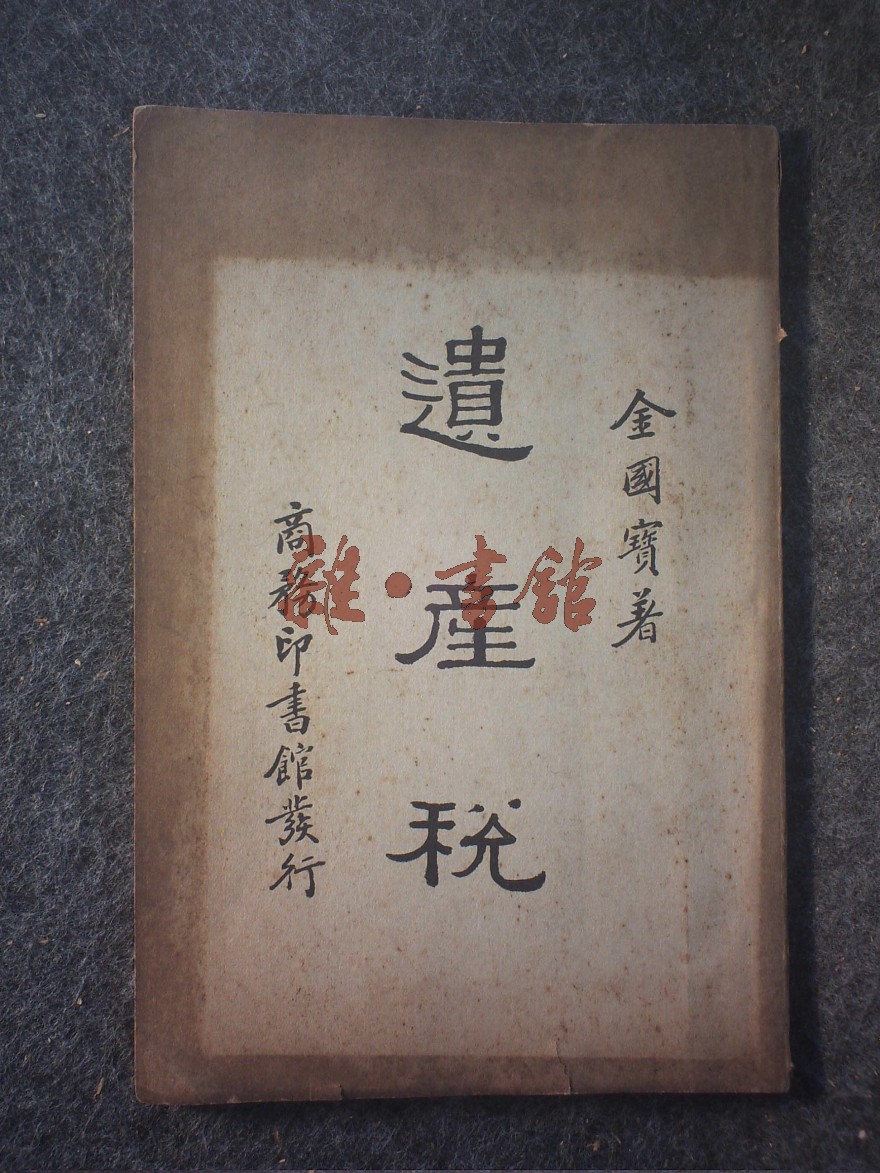 金國寶著
遺產稅
商務印書館發行
雜·書館